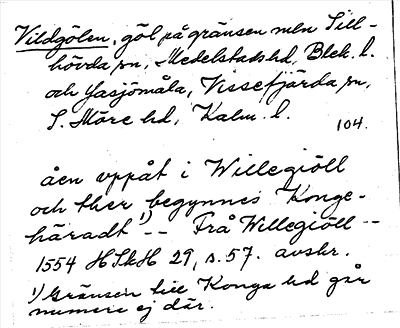 Vildgölen, göl på gränsen mln Sill-
hövda sn, Medelstads hd, Blek. l.
och Yasjömåla, Vissefjärda sn,
S. Möre hd, Kalm. l.
104.
åen uppåt i Willegiöll
och ther begynnes Konge-
häradt 1) -- Frå Willegiöll --
1554 HSkH 29, s. 57. avskr.
1) Gränsen till Konga hd går
numera ej där.